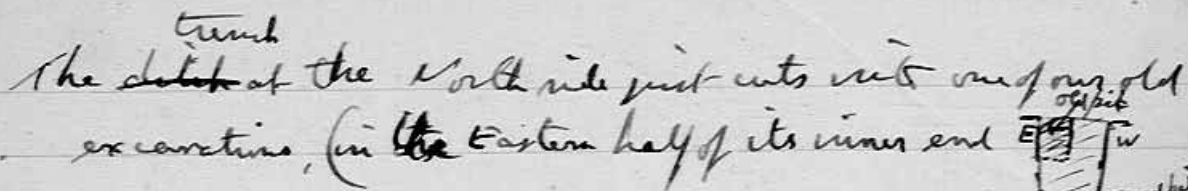 trench
The ditch at the North side just cuts into one of our old
excavations, (in the Eastern half of its inner end
old pit
E W